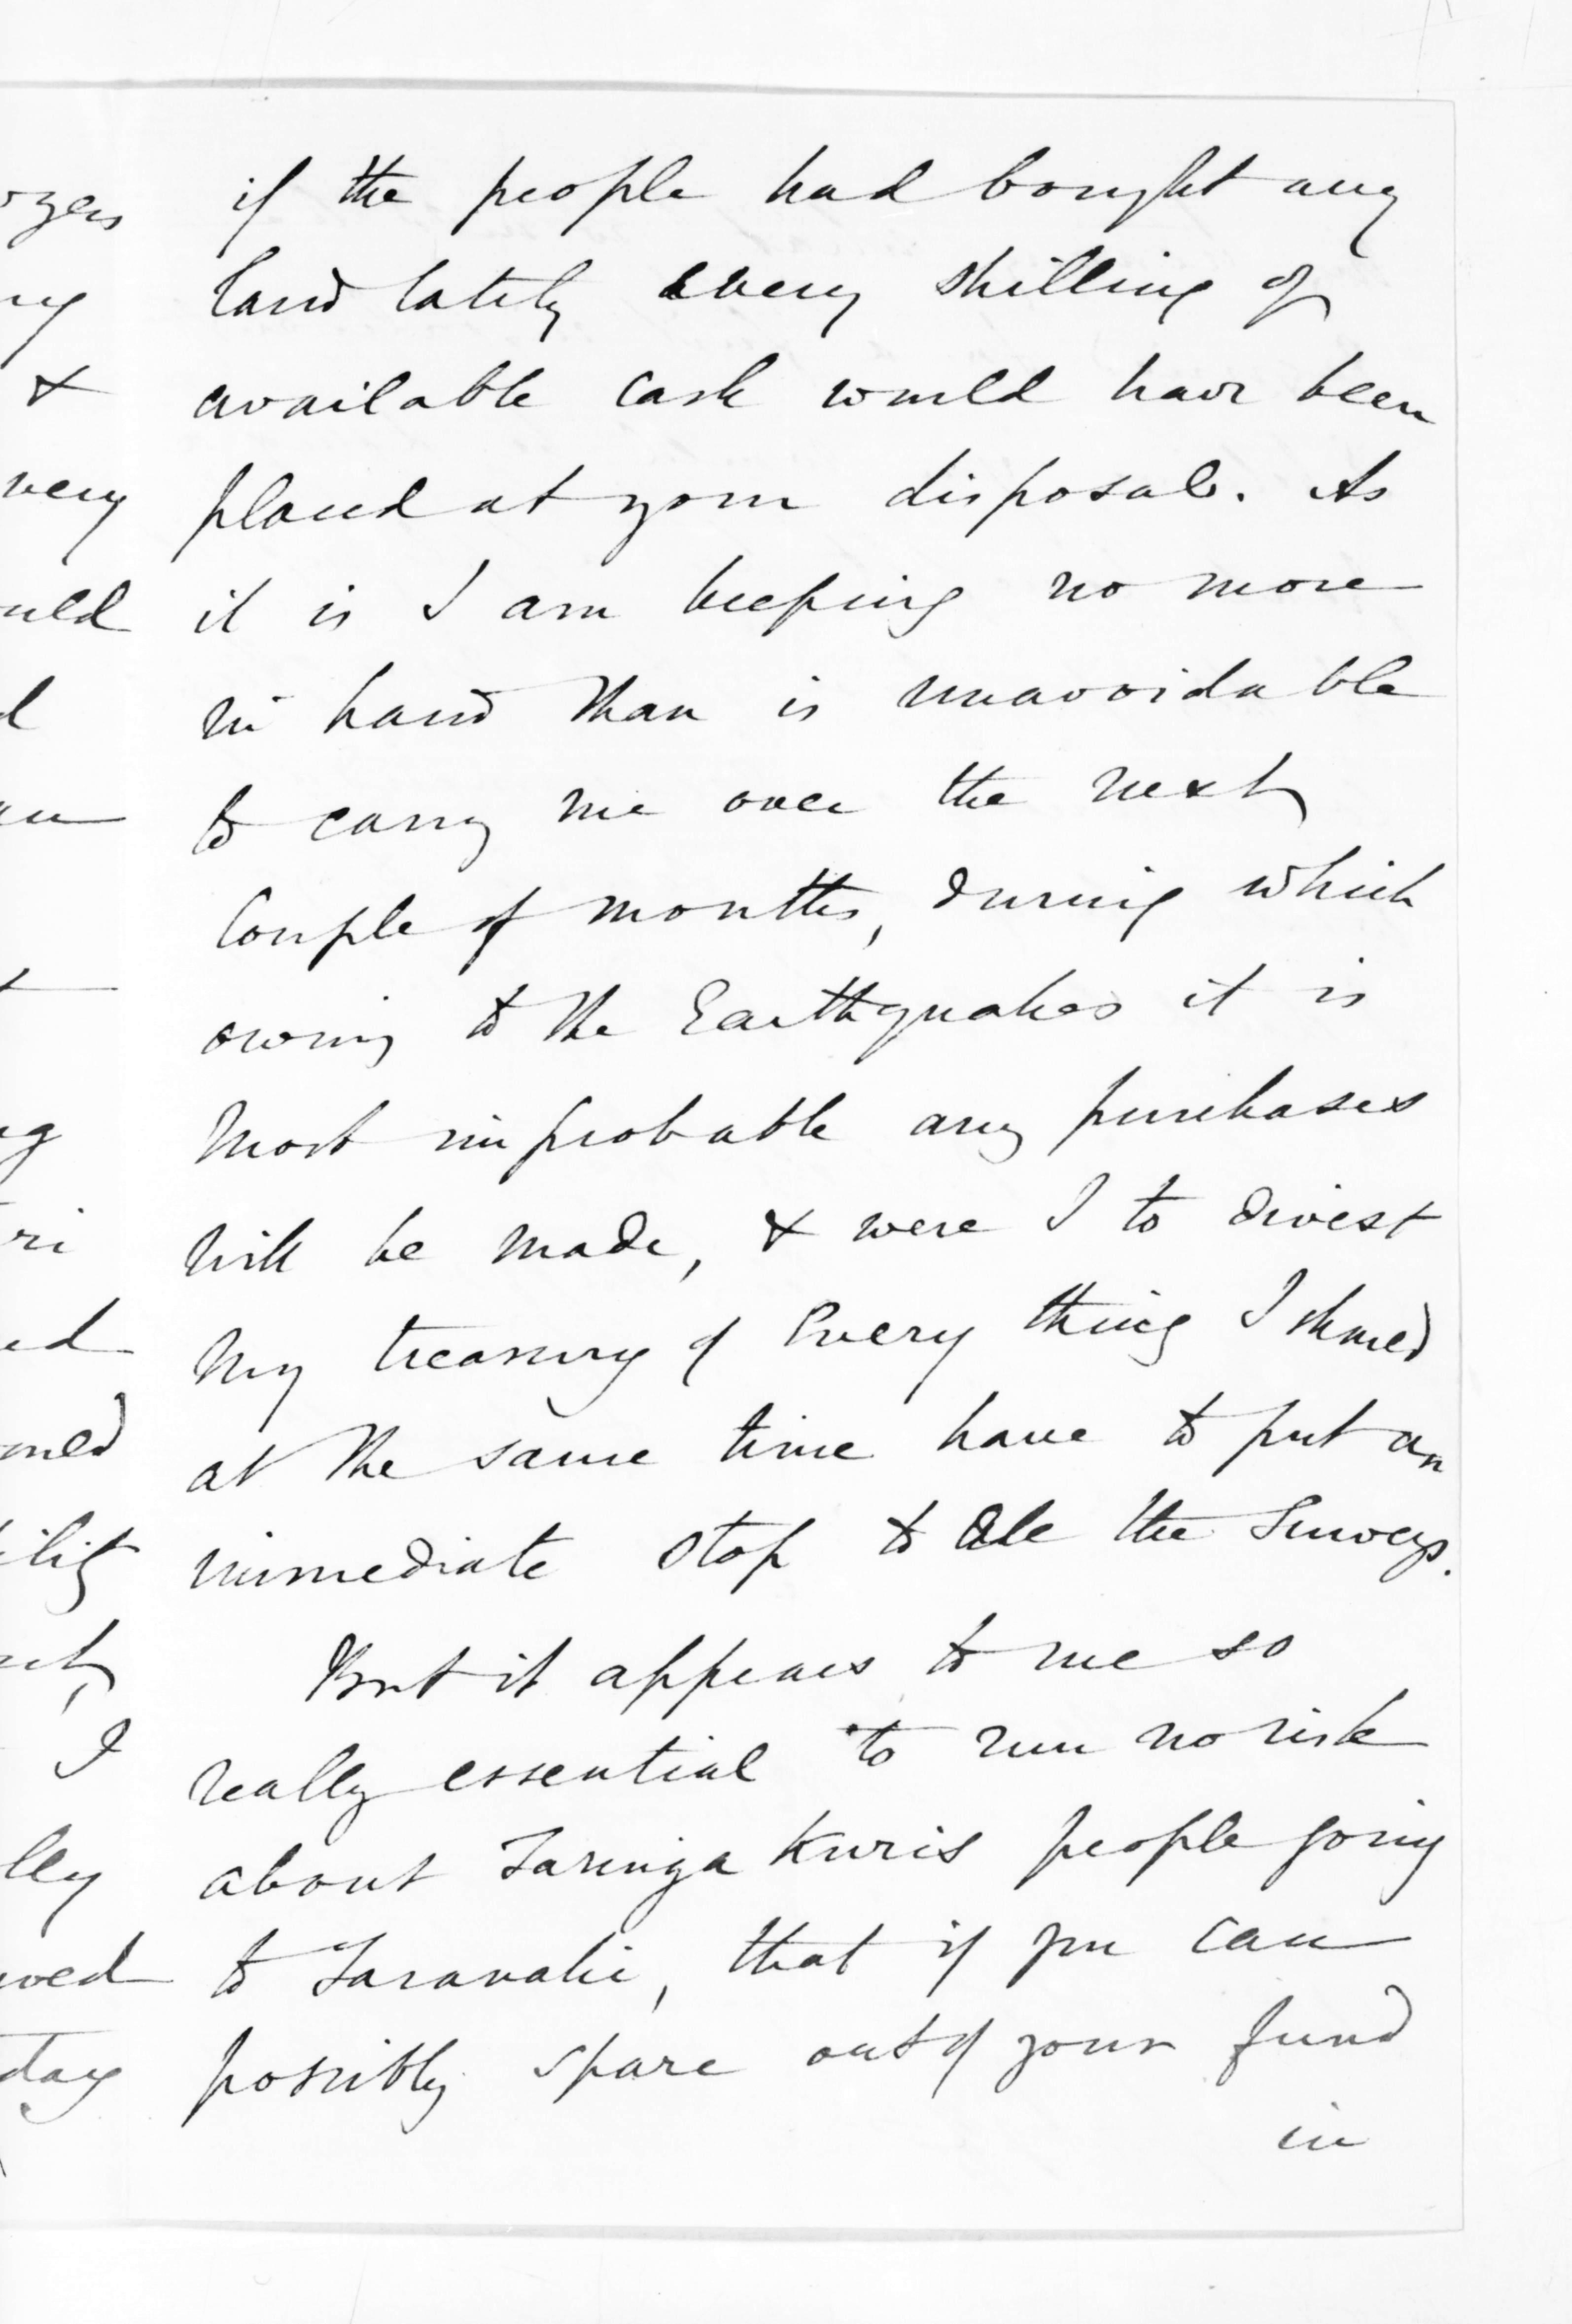 if the people had bought any
land lately every shilling of
available cash would have been
placed at your disposal. As
it is I am keeping no more
in hand than is unavoidable
to carry me over the next
couple of months, during which
owing to the Earthquakes it is
most improbable any purchases
will be made, & were I to divest
my treasury of every thing I should
at the same time have to put an
immediate stop to all the Surveys.
But it appears to me so
really essential to run no risk
about Taringa Kuris people going
to Taranaki, that if you can
possibly spare out of your fund
in